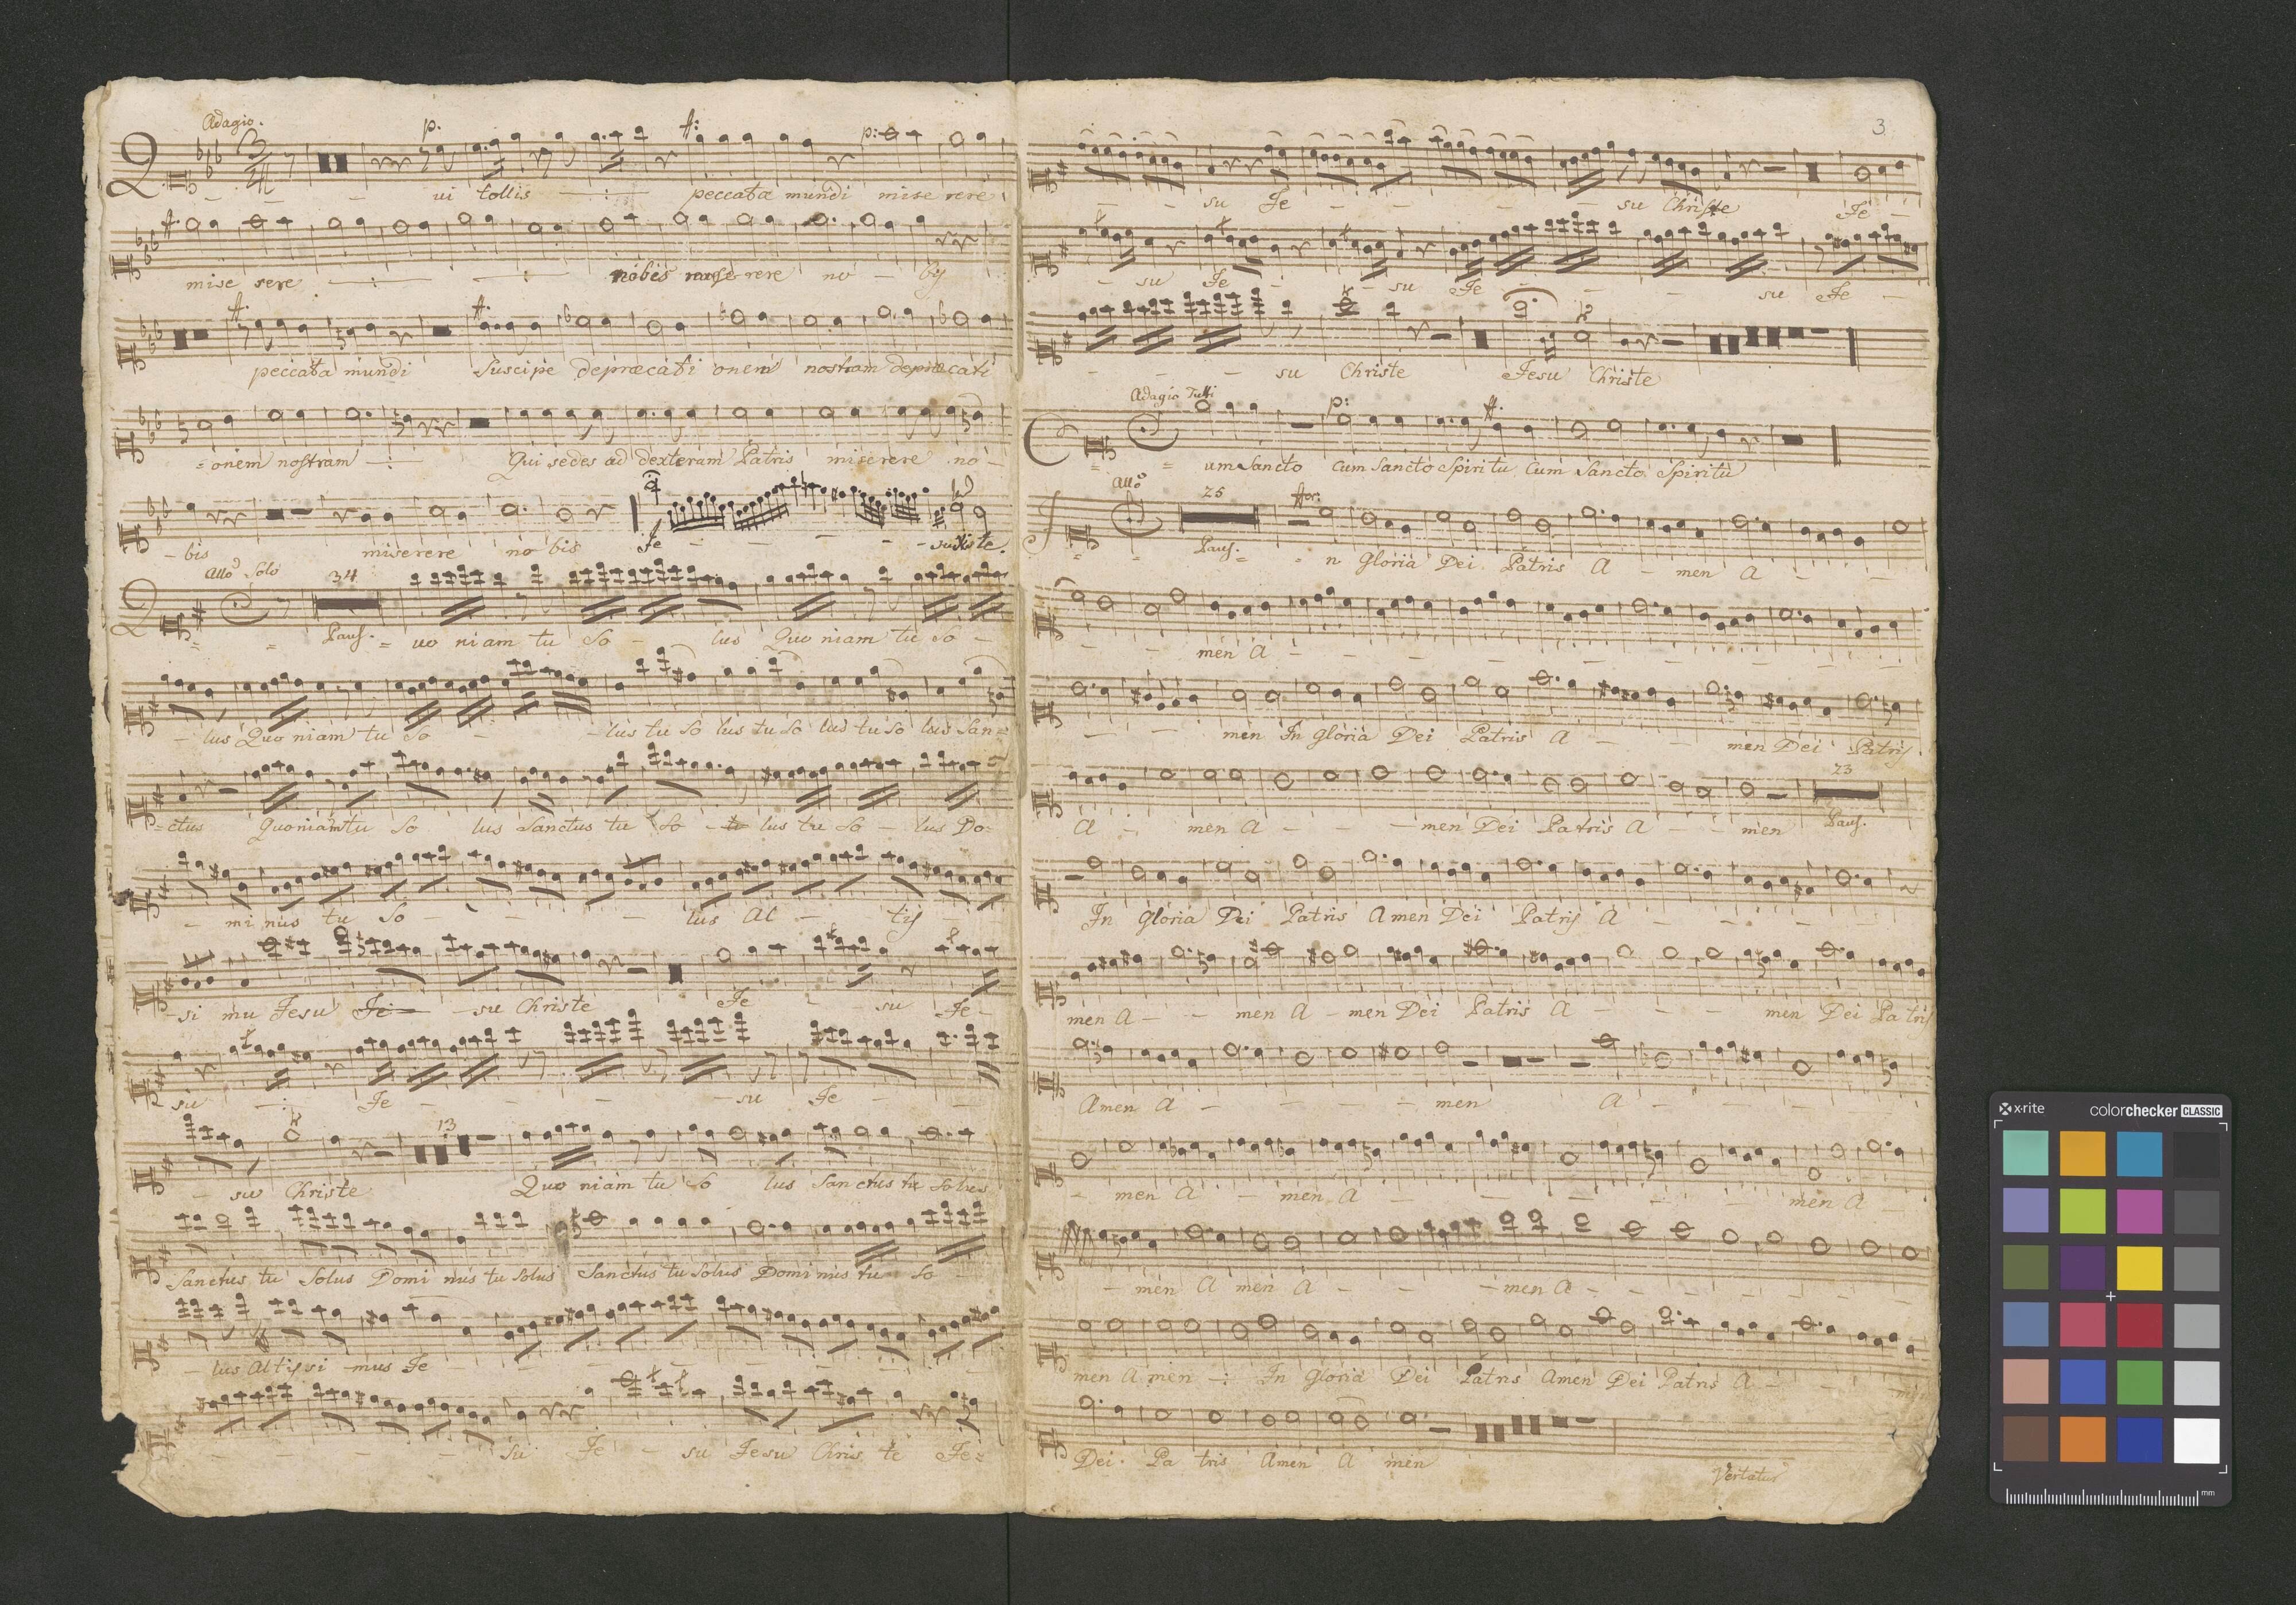 Adagio.
p. f: p:
Qui tollis peccata mundi mise rere
mise rere nobis rere no - bis
f. f.
peccata mundi Suscipe depræcati onem nostram depræcati
= onem nostram Qui sedes ad dexteram Patris miserere no -
- bis miserere no bis Je - - - - - su te.
Allo Solo 34
Paus. = Quo niam tu So - lus Quo niam tu So -
- lus Quo niam tu So - - lus tu So lus tu So lus tu So lus San =
= ctus Quoniam tu So lus Sanctus tu So - lus tu So - lus Do =
- mi nus tu So - - - - lus Al - tis
- si mu Jesu Je - su Christe Je - su Je -
su Je - - - su Je - -
13
- su Christe Quo niam tu So lus Sanctus tu Solus
Sanctus tu Solus Domi nus tu Solus Sanctus tu Solus Domi nus tu So -
- lus Altissi mus Je - - - -
- - - - Su Je - su Jesu Chris te Je =
3
- - su Je - - - - su Christe Je -
- su Je - - su Je - - su Je -
- - - su Christe Jesu Christe
Adagio Tutti
p: f.
C = = um Sancto cum Sancto Spiritu cum Sancto Spiritu
Allo 25 for:
Paus. = - n Gloria Dei Patris A - men A - -
- - men A - - - - - - - -
- - men In gloria Dei Patris A - - men Dei Patris.
23
A - men A - - - men Dei Patris A - - men Paus.
In gloria Dei Patris Amen Dei Patris A - - - -
men A - - men A - men Dei Patris A - - - men Dei Patris
Amen A - - - - men A - - -
- men A - men A - - - - - men A -
- men A men A - - - men A - - - - - -
men A men In gloria Dei Patris Amen Dei Patris A - - - men
Dei Pa tris Amen A men
Vertatur
xrite colorchecker CLASSIC
mm